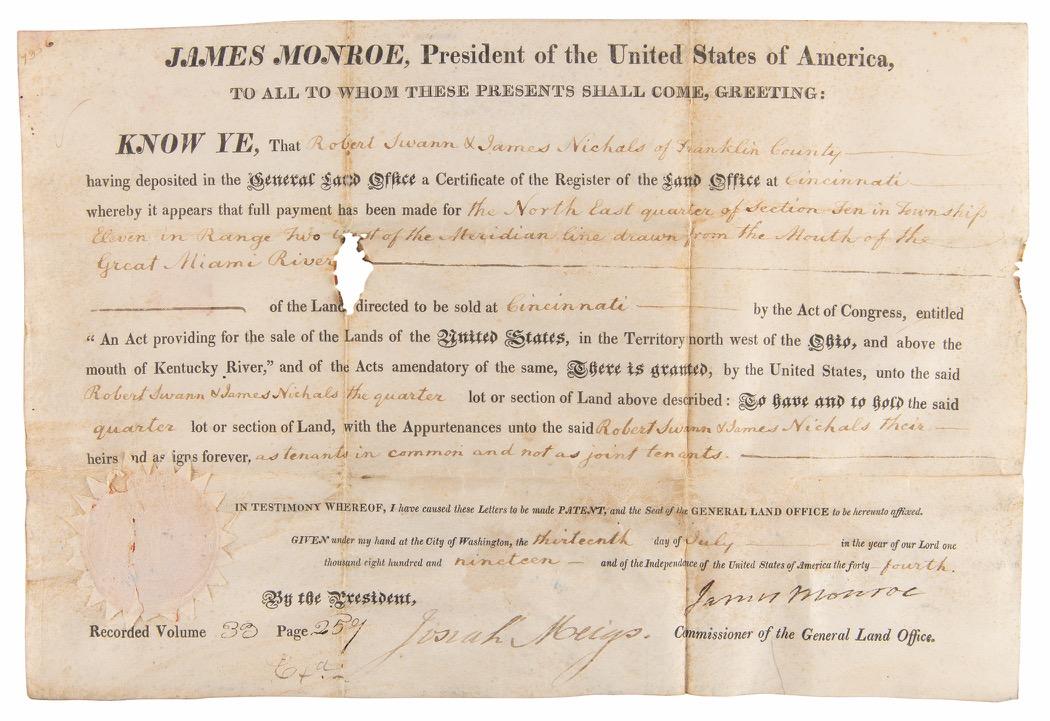 JAMES MONROE, President of the United States of America,
TO ALL TO WHOM THESE PRESENTS SHALL COME, GREETING:
KNOW YE, That Robert Swann & James Nichals of Franklin County
having deposited in the General Land Office a Certificate of the Register of the Land Office at Cincinnati
whereby it appears that full payment has been made for the North East quarter of Section Ten in Township
Eleven in Range Two of the Meridian line drawn from the Mouth of the
Great Miami River
of the Land directed to be sold at Cincinnati by the Act of Congress, entitled
“ An Act providing for the sale of the Lands of the United States, in the Territory north west of the Ohio, and above the
mouth of Kentucky River,” and of the Acts amendatory of the same, There is granted, by the United States, unto the said
Robert Swann & James Nichals the quarter lot or section of Land above described : To have and to hold the said
quarter lot or section of Land, with the Appurtenances unto the said Robert Swann & James Nichals their
heirs nd as igns forever, as tenants in common and not as joint tenants.
IN TESTIMONY WHEREOF, I have caused these Letters to be made PATENT, and the Seal of the GENERAL LAND OFFICE to be hereunto affixed.
GIVEN under my hand at the City of Washington, the thirteenth day of July in the year of our Lord one
thousand eight hundred and nineteen and of the Independence of the United States of America the forty fourth.
James Monroe
By the President,
Josiah Meigs. Commissioner of the General Land Office.
Recorded Volume 33 Page 257